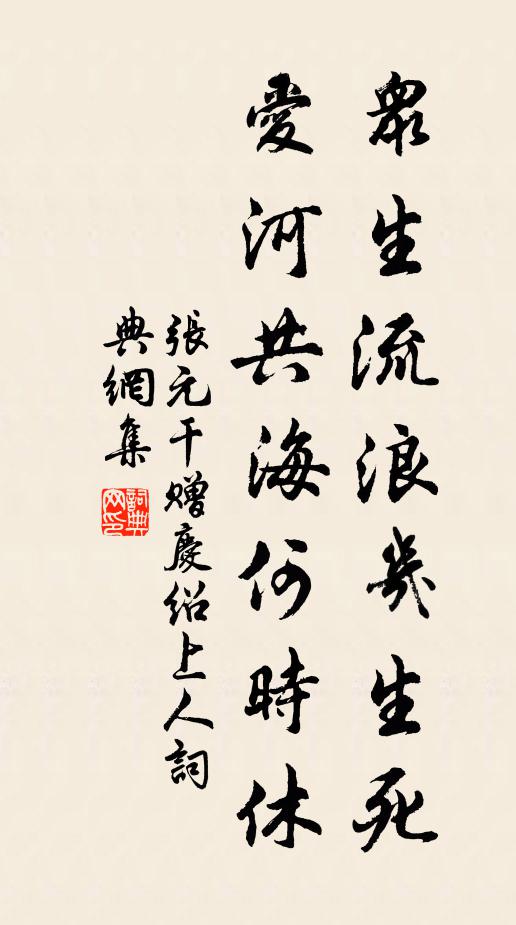 眾生流浪幾生死
愛河共海何時休
張元干贈慶紹上人詞
典網集
詞典網印